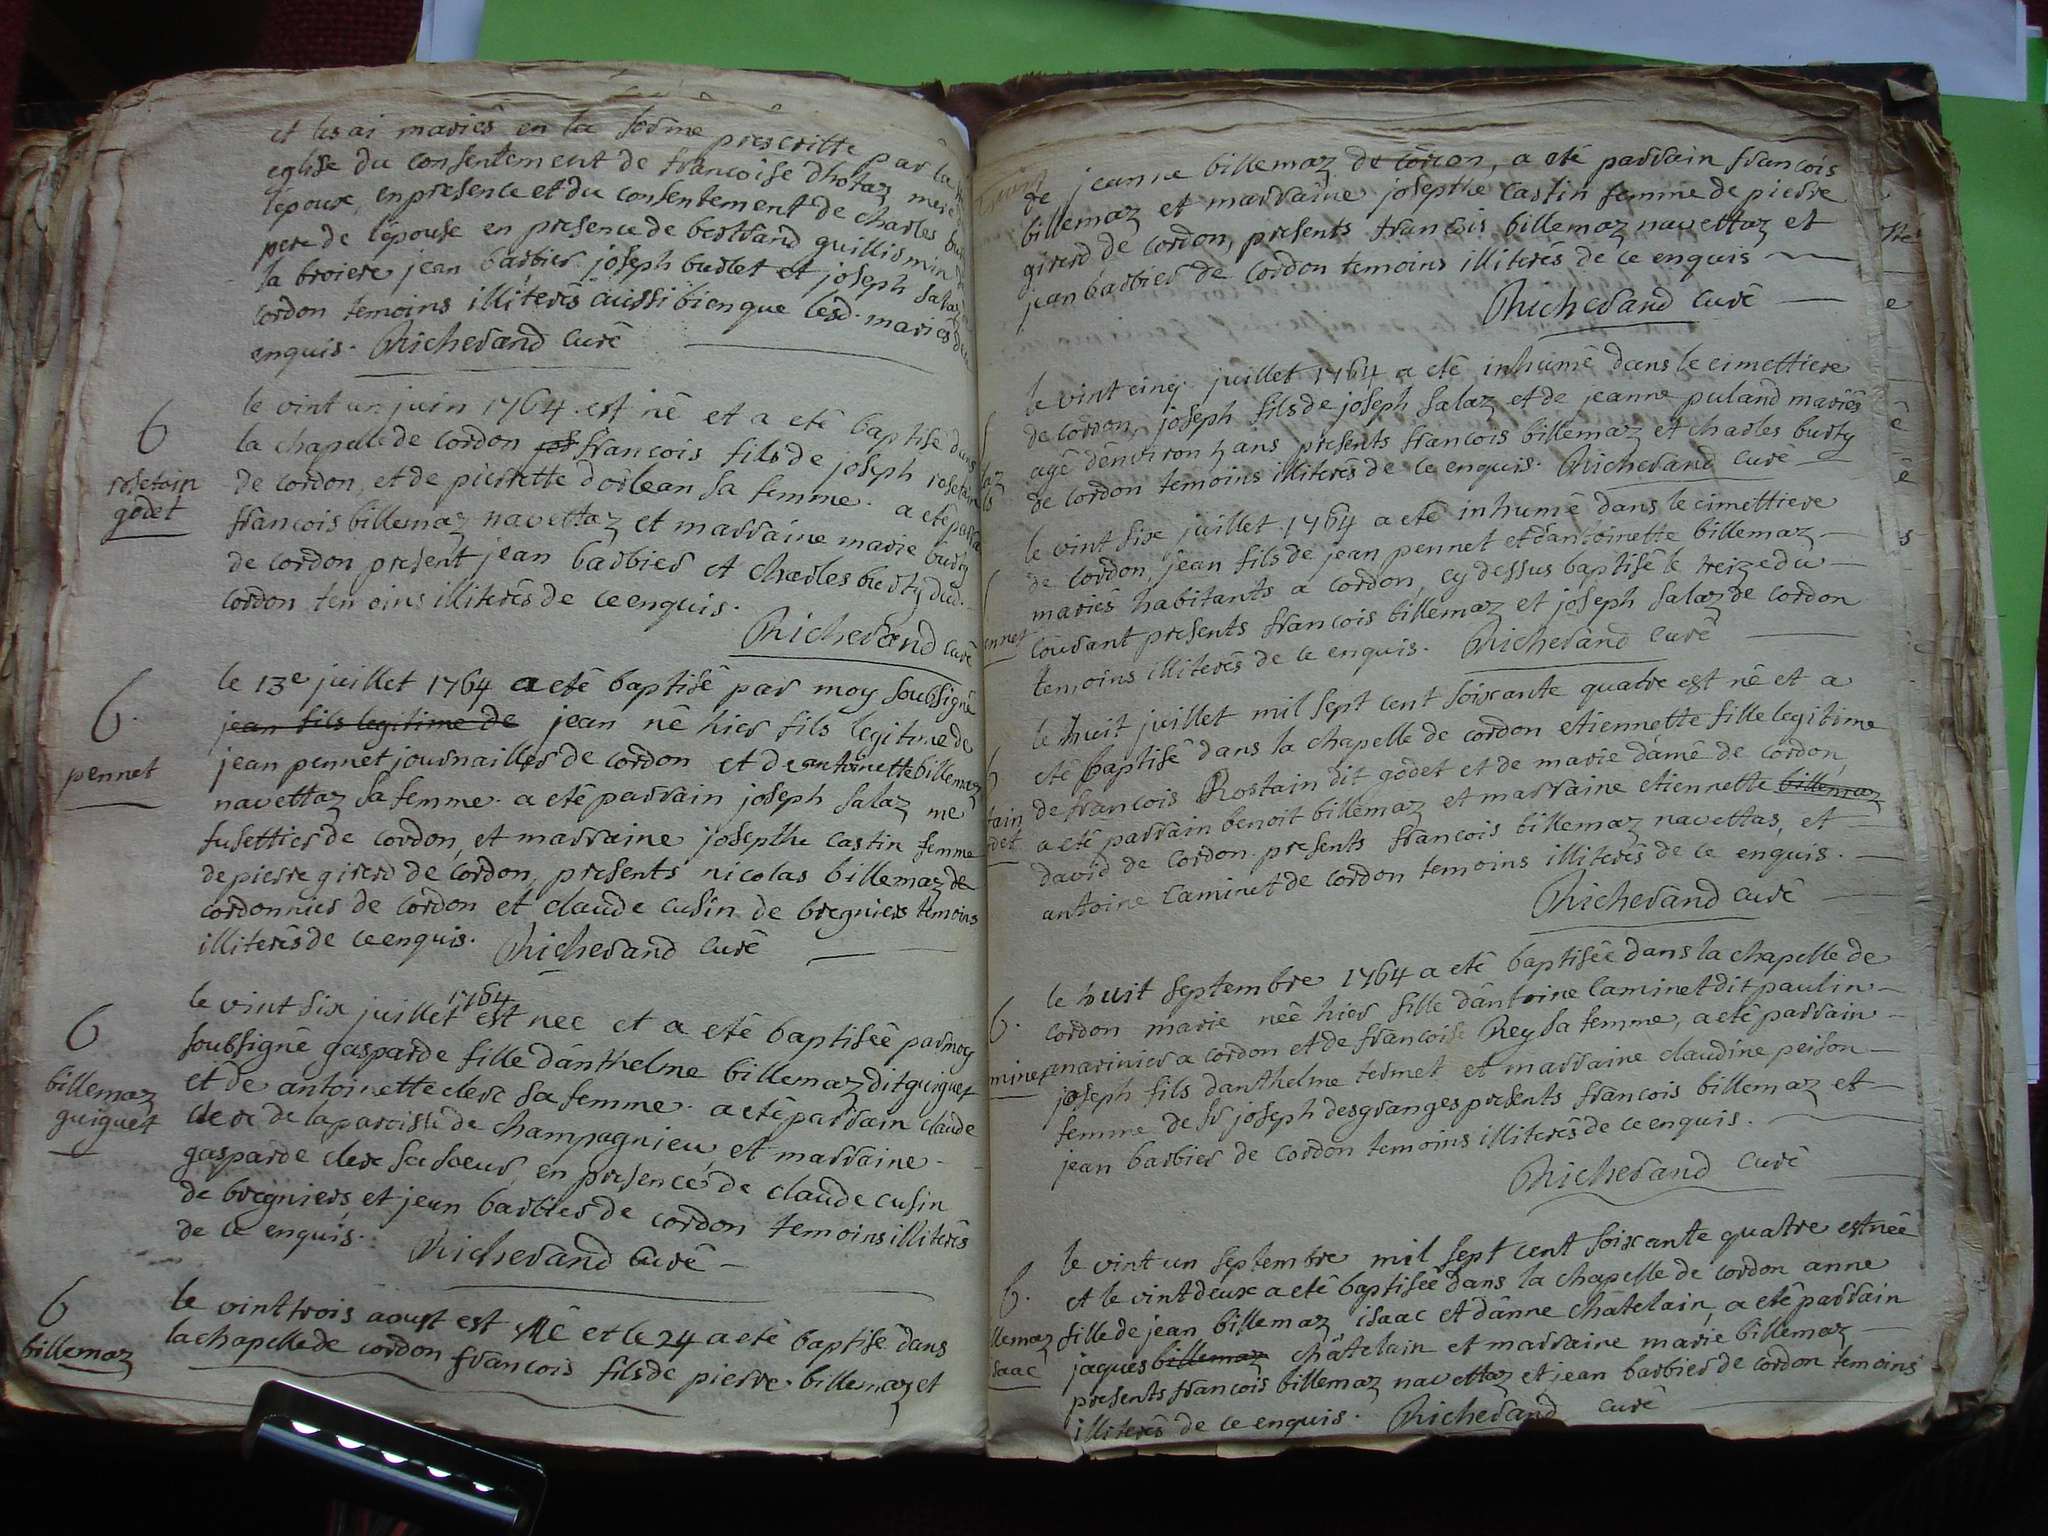 et les ai mariés en la forme prescritte par la
eglise du consentement de francoise dhotaz mere
lépoux, en presence et du consentement de charles
pere de lépouse en presence de bertrand guillermin
la broiere jean barbier joseph burlet et joseph salaz
cordon temoins illiterés aussi bien que lesd. mariés
enquis. Richerand curé
le vint un juin 1764 est né et a eté baptisé dans
6
la chapelle de cordon jos francois fils de joseph rosetain
rosetain
godet
de cordon, et de pierrette dorlean sa femme. a eté
francois billemaz navettaz et marraine marie burty
de cordon present jean barbier et charles burty dud.
cordon temoins illiterés de ce enquis.
Richerand curé
le 13e juillet 1764 a eté baptisé par moy soubsigné
6.
jean fils legitime de jean né hier fils legitime de
pennet
jean pennet journaillier de cordon et de antoinette billemaz
navettaz sa femme. a eté parrain joseph salaz me
fusettier de cordon, et marraine josepthe castin femme
de pierre girerd de cordon, presents nicolas billemaz
cordonnier de cordon et claude cusin de bregniers temoins
illiterés de ce enquis. Richerand curé
le vint six juillet 1764 est nee et a eté baptiseé par moy
6
soubsigné gasparde fille dánthelme billemaz dit guiguet
billemaz
guiguet
et de antoinette clerc sa femme. a eté parrain claude
clerc de la paroisse de champagnieu, et marraine
gasparde clerc sa soeur, en presence de claude cusin
de bregniers, et jean barbier de cordon temoins illiterés
de ce enquis. Richerand curé
6
le vint trois aoust est né et le 24 a eté baptisé dans
billemaz
la chapelle de cordon francois fils de pierre billemaz et
de jeanne billemaz de cordon, a eté parrain francois
billemaz et marraine josepthe castin femme de pierre
girerd de cordon, presents francois billemaz navettaz et
jean barbier de cordon temoins illiterés de ce enquis
Richerand curé
le vint cinq juillet 1764 a eté inhumé dans le cimettiere
de cordon, joseph fils de joseph salaz et de jeanne puland mariés
agé dénviron 7 ans presents francois billemaz et charles burty
de cordon temoins illiterés de ce enquis. Richerand curé
le vint six juillet 1764 a eté inhumé dans le cimettiere
de cordon, jean fils de jean pennet et dántoinette billemaz
mariés habitants a cordon, cy dessus baptisé le treize du
ennet
courant presents francois billemaz et joseph salaz de cordon
temoins illiterés de ce enquis. Richerand curé
le huit juillet mil sept cent soixante quatre est né et a
eté baptisé dans la chapelle de cordon etiennette fille legitime
tain
det
de francois Rostain dit godet et de marie damé de cordon,
a eté parrain benoit billemaz et marraine etiennette billemaz
david de cordon. presents francois billemaz navettas, et
antoine caminet de cordon temoins illiterés de ce enquis.
Richerand curé
le huit septembre 1764 a eté baptiseé dans la chapelle de
6.
cordon marie née hier fille dántoine caminet dit paulin
minet
marinier a cordon et de francoise Rey sa femme, a eté parrain
joseph fils danthelme termet et marraine claudine peison
femme de Sr joseph desgranges presents francois billemaz et
jean barbier de cordon temoins illiterés de ce enquis.
Richerand curé
le vint un septembre mil sept cent soixante quatre est née
6.
et le vint deux a eté baptiseé dans la chapelle de cordon anne
llemaz
isaac
fille de jean billemaz isaac et dánne châtelain, a eté parrain
jaques billemaz châtelain et marraine marie billemaz
presents francois billemaz navettaz et jean barbier de cordon temoins
illiterés de ce enquis. Richerand curé